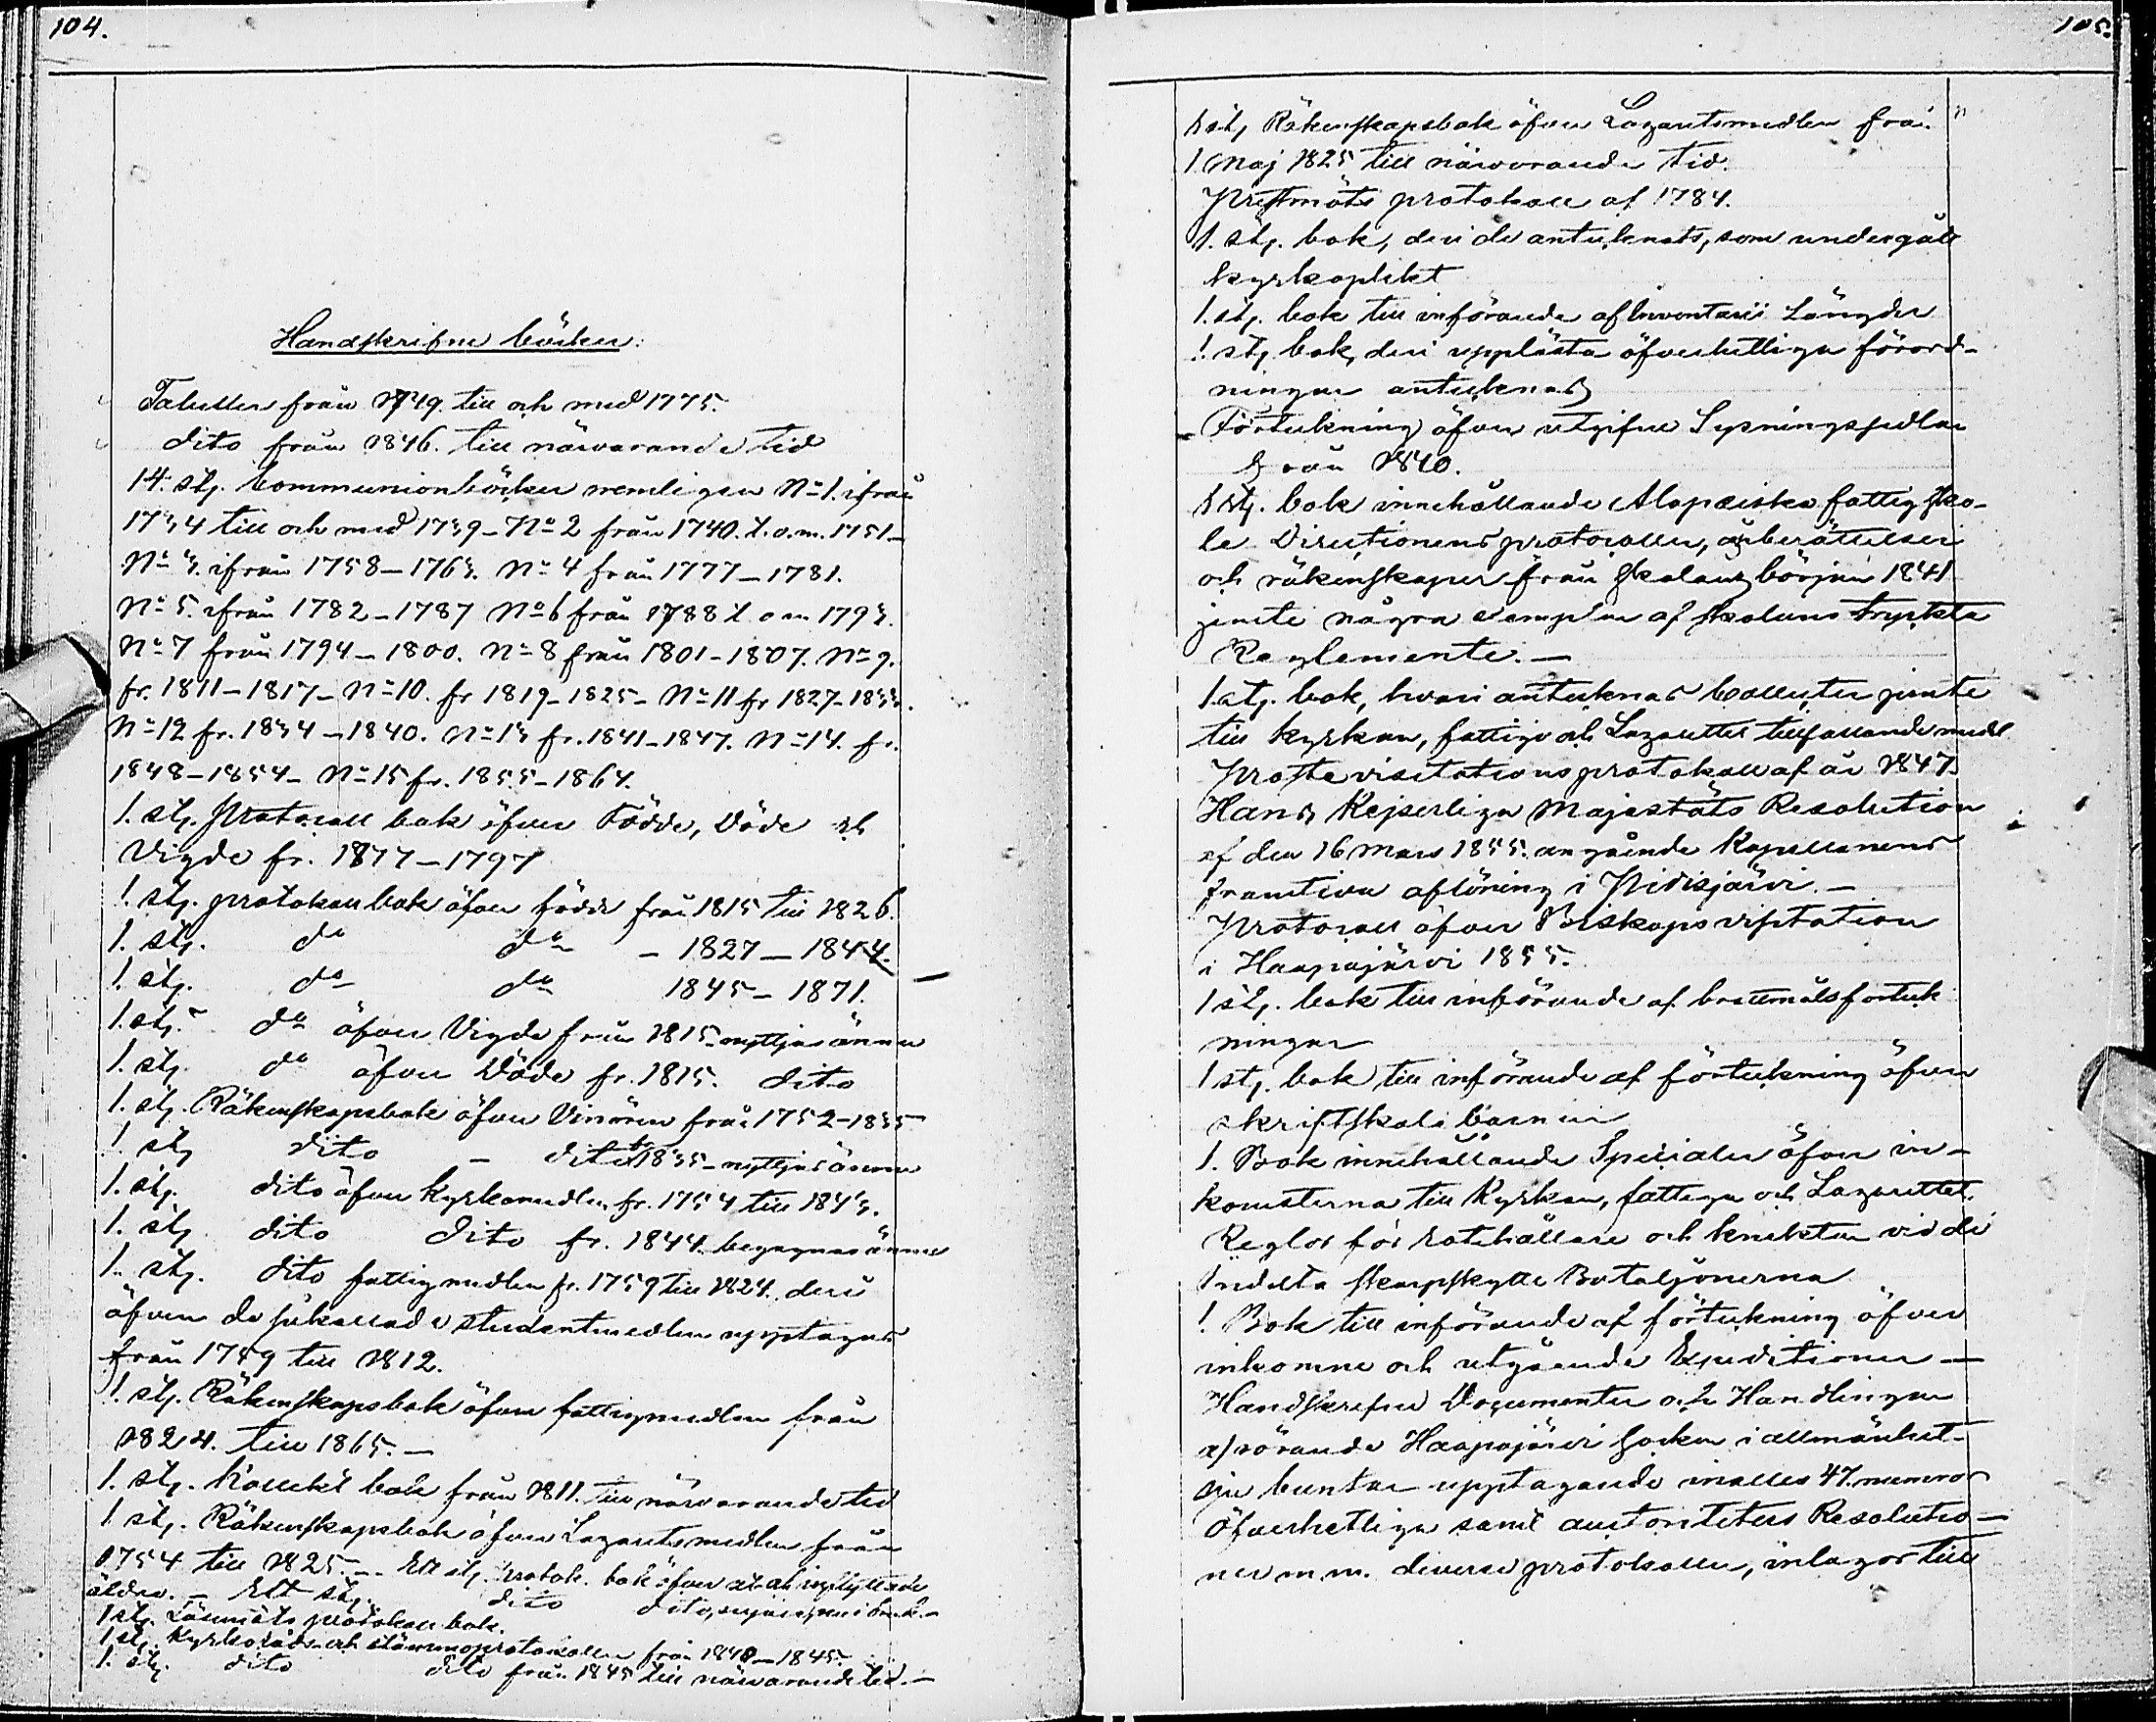 104.
Handskrifne böcker:
Tabeller från 1749. till och med 1775.
dito från 1846. till närvarande tid
14. stj. Communionböcker nemligen No 1. ifrån
1734 till och med 1739 - No 2 från 1740. t.o.m. 1751 -
No 3. ifrån 1758 - 1763. No 4 från 1777 - 1781.
No 5. ifrån 1782 - 1787 No 6 från 1788 t. o m 1793.
No 7 från 1794 - 1800. No 8 från 1801 - 1807. No 9.
fr. 1811 - 1817 - No 10. fr 1819 - 1825 - No 11 fr 1827 - 1833.
No 12 fr. 1834 - 1840. No 13 fr. 1841 - 1847. No 14. fr.
1848 - 1854 - No 15 fr. 1855 - 1864.
1. stj. Protocoll bok öfver Födde, Döde och
Vigde fr. 1777 - 1797
1. stj. protokoll bok öfver födde från 1815 till 1826.
1. stj. do do - 1827 - 1844.
1. stj. do do 1845 - 1871. -
1. stj. do öfver Vigde från 1815 - nyttjas ännu
1. stj. do öfver Döde fr. 1815. dito
1. stj. Räkenskapsbok öfver Vinören från 1752 - 1835
1. stj dito - dito fr 1835 - nyttjas ännu
1. stj. dito öfver Kyrkomedlen fr. 1754 till 1843.
1. stj dito dito fr. 1844. begagnas ännu
1. stj. dito fattigmedlen fr. 1759 till 1824. deri
öfven de så kallade studentmedlen upptagas
från 1789 till 1812.
1. stj. Räkenskapsbok öfver fattigmedlen från
1824. till 1865. -
1. stj. Kollekt bok från 1811. till närvarande tid
1 stj. Räkenskapsbok öfver Lazaretsmedlen från
1754 till 1825. - Ett stj. Protok. bok öfver ut och inflyttade
äldre. - Ett stj. dito dito,
1 stj. Läsemöts protokoll bok.
1 stj. Kyrkoråds och stämmoprotocoller från 1840 - 1845.
1. stj. dito dito från 1845 till närvarande tid. -
105.
1 stj Räkenskapsbok öfver Lazaretsmedlen från
1 Maj 1825 till närvarande tid.
Prestmöts protokoll af 1784.
1. stj. bok, deri de antecknats, som undergått
kyrkoplikt
1. stj. bok till införande af Inventarii Längder
1. stj bok, deri upplästa öfverhetliga förord-
ningar antecknas
Förteckning öfver utgifne Lysningssedlar
från 1840.
1 stj. bok innehållande Alopæiska fattig sko-
le Directionens protocoller, årsberättelser
och räkenskaper från skolans början 1841
jemte några exemplar af skolans tryckta
Reglemente. -
1. stj. bok, hvari antecknas Collecter jemte
till kyrkan, fattige och Lazarettet tillfallande medel
Prosta visitations protokoll af år 1847.
Hans Kejserliga Majestäts Resolution
af den 16 Mars 1855. angående Kapellanens
framtida aflöning i Pidisjärvi. -
Protocoll öfver Biskops visitation
i Haapajärvi 1855.
1 stj. bok till införande af brottmåls förteck
ningar
1 stj. bok till införande af förteckning öfver
skriftskole barnen
1. Bok innehållande Specialer öfver in-
komsterna till Kyrkan, fattige och Lazarettet.
Reglor för rotehållare och knektar vid de
Indelta skarpskytte Bataljonerna
1. Bok till införande af förteckning öfver
inkomne och utgående Expeditioner -
Handskrefne Documenter och Handlingar
a) rörande Haapajärvi socken i allmänhet -
sju buntar upptagande inalles 47. numror
Öfverhetliga samt auctoriteters Resolutio -
ner m.m. diverse protokoller, inlagor till